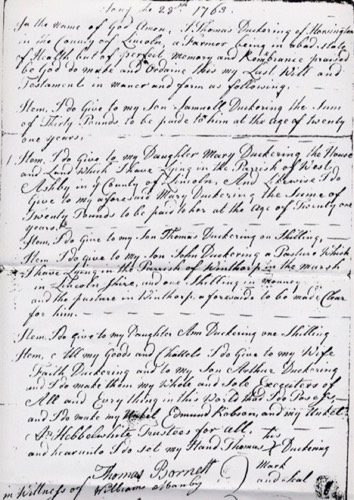 28th 1763
In the name of God Amen, I Thomas Duckering of
in the County of Lincoln, a Farmer being in a bad state
of Health but of perfect memory and Rembrance praised
be God do make and Ordaine this my Last Will and
Testament in maner and form as following.
Item, I do Give to my Son Samuell Duckering the Sum
of Thirty Pounds to be paide to him at the age of twenty
one years.
Item, I do Give to my Daughter Mary Duckering the House
and Land which I have Lying in the Parrish of West
Ashby in ye County of Lincoln, And Likewise I do
Give to my aforesaid Mary Duckering the Sume of
Twenty Pounds to be paid to her at the Age of Twenty one
years.
Item, I do Give to my Son Thomas Duckering on Shilling,
Item I do Give to my Son John Duckering a Pasture Which
I have Lying in the Parrish of Winthorp in the marsh
in Lincoln Shire, and one Shilling in money,
and the pasture in Winthorp aforesande to be made Clear
for him.
Item, I do Give to my Daughter Ann Duckering one Shilling
Item, All my Goods and Chattels I do Give to my Wife
Faith Duckering and to my Son Arthur Duckering
and I do make them my Whole and Sole Executors of
All and Evry thing in this World that I do Posess,
and I do make my Edmund Robson, and my
Hebbelwhite Trustees for all.
and hearunto I do Set my Hand Thomas X Duckering
his
Mark
and Seal
Thomas Barnett
in Witness of Williams Manby